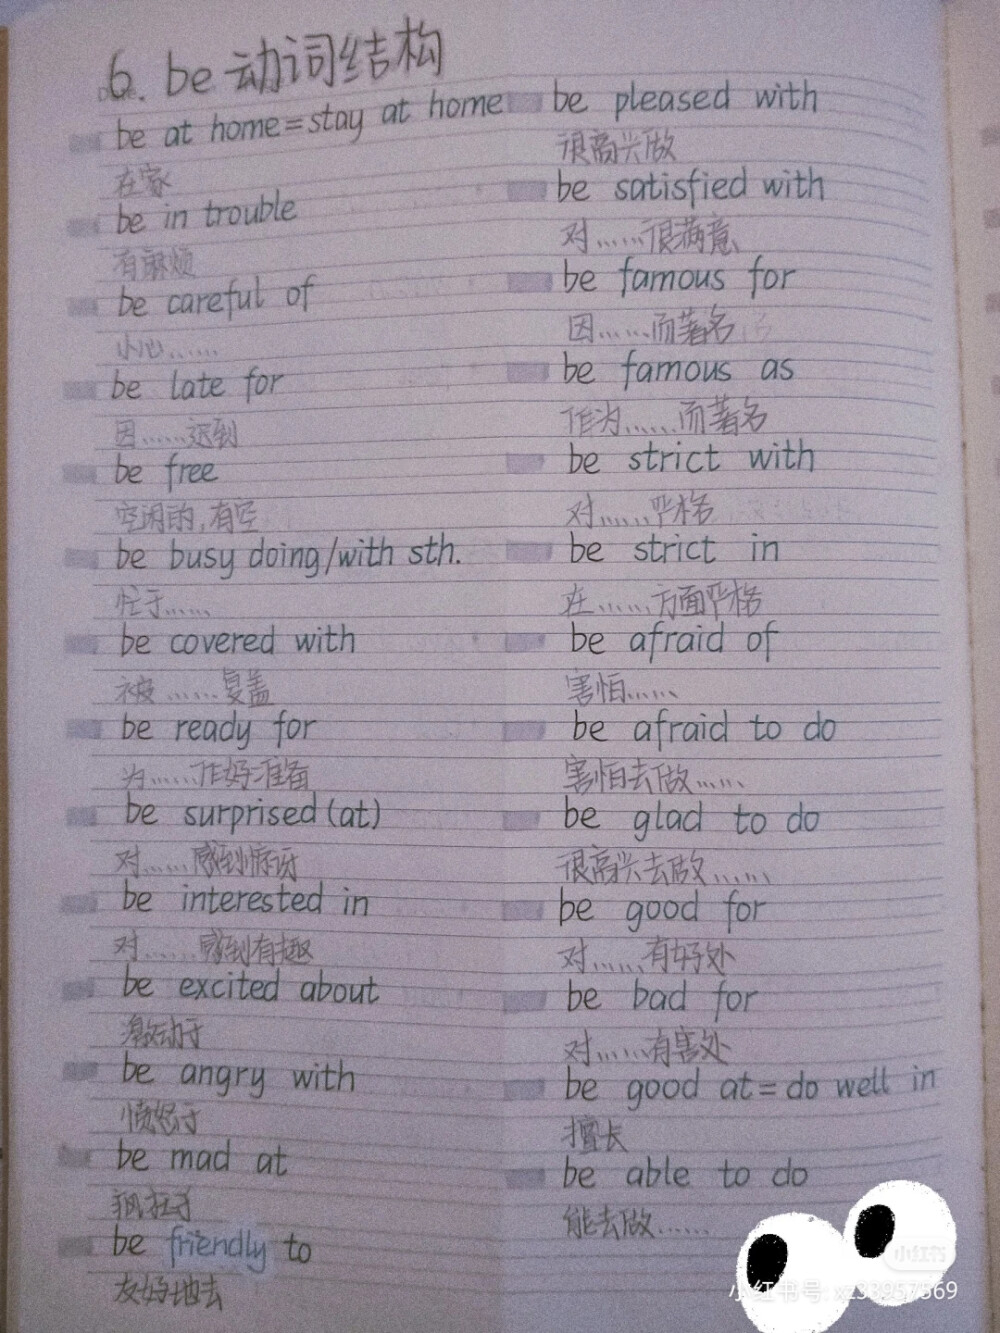 6. be 动词结构
be at home=stay at home
在家
be in trouble
有麻烦
be careful of
小心……
be late for
因……迟到
be free
空闲的,有空
be busy doing/with sth.
忙于……
be covered with
被……复盖
be ready for
为……作好准备
be surprised (at)
对……感到惊讶
be interested in
对……感到有趣
be excited about
激动于
be angry with
愤怒于
be mad at
疯狂于
be friendly to
友好地去
be pleased with
很高兴做
be satisfied with
对……很满意
be famous for
因……而著名
be famous as
作为……而著名
be strict with
对……严格
be strict in
在……方面严格
be afraid of
害怕……
be afraid to do
害怕去做……
be glad to do
很高兴去做……
be good for
对……有好处
be bad for
对……有害处
be good at=do well in
擅长
be able to do
能去做……
小红书
小红书号: xz33957569